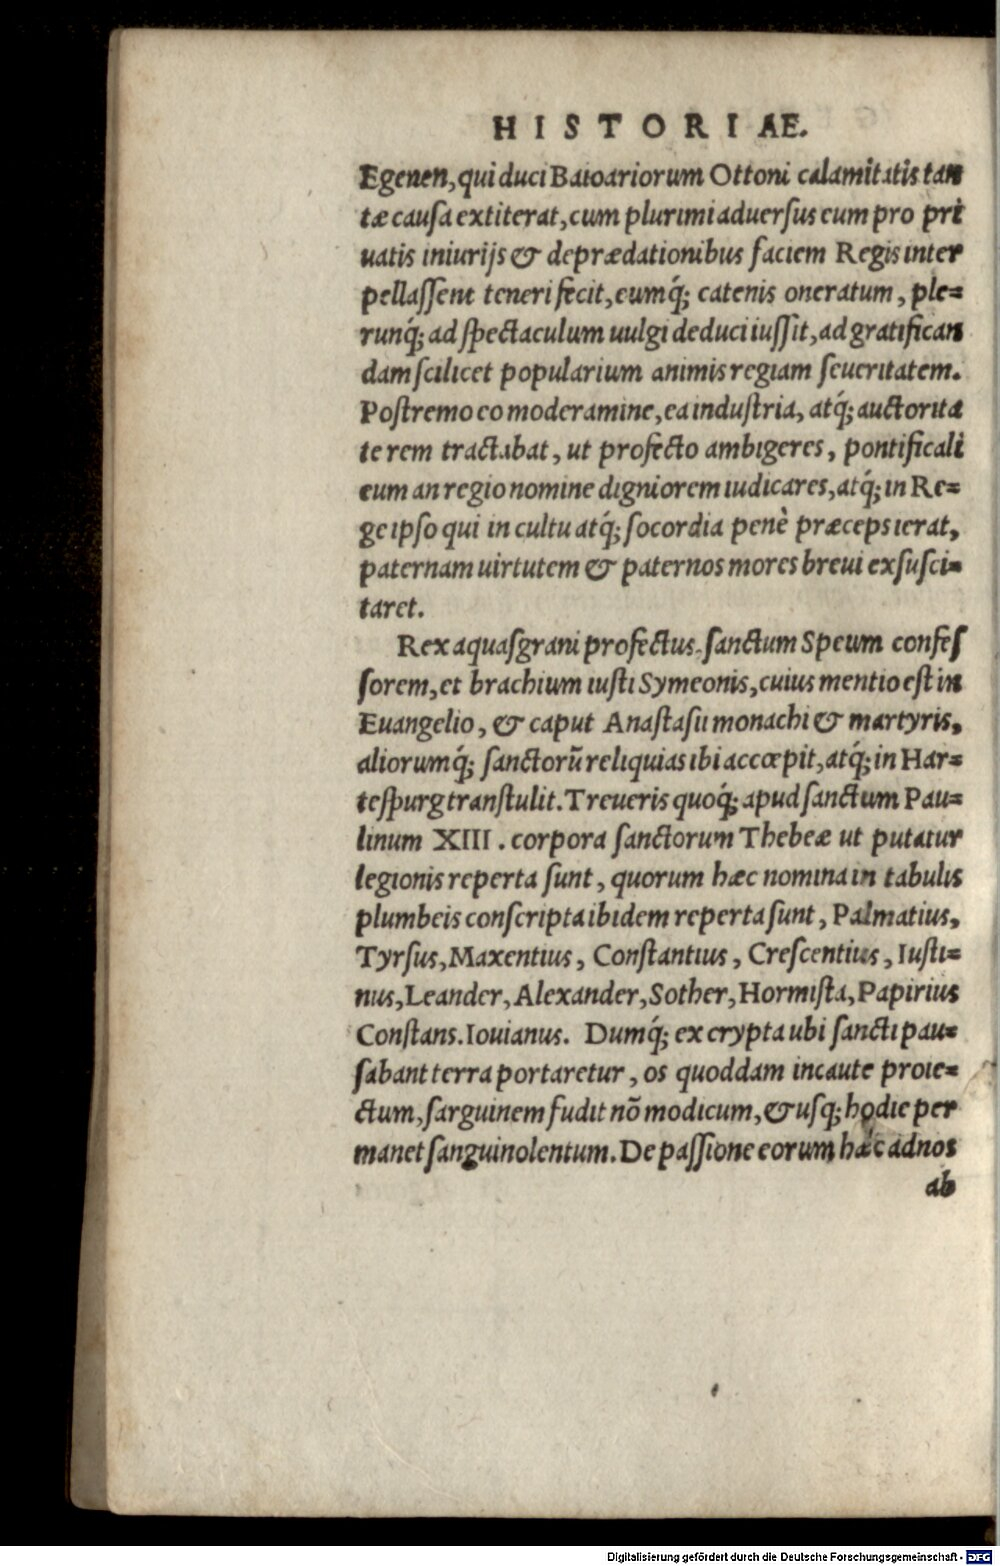 HISTORIAE.
Egenen, qui duci Baioariorum Ottoni calamitatis tan
tæ causa extiterat, cum plurimi aduersus eum pro pri
uatis iniurijs & deprædationibus faciem Regis inter
pellassent teneri fecit, eumq́; catenis oneratum, ple=
runq́; ad spectaculum uulgi deduci iussit, ad gratifican
dam scilicet popularium animis regiam seueritatem.
Postremo eo moderamine, ea industria, atq́; auctorita
te rem tractabat, ut profecto ambigeres, pontificali
eum an regio nomine digniorem iudicares, atq́; in Re=
ge ipso qui in cultu atq́; socordia penè præceps ierat,
paternam uirtutem & paternos mores breui exsusci=
taret.
Rex aquasgrani profectus. sanctum Speum confes
sorem, et brachium iusti Symeonis, cuius mentio est in
Euangelio, & caput Anastasii monachi & martyris,
aliorumq́; sanctorū reliquias ibi accœpit, atq́; in Har=
tespurg transtulit. Treueris quoq́; apud sanctum Pau=
linum XIII. corpora sanctorum Thebeæ ut putatur
legionis reperta sunt, quorum hæc nomina in tabulis
plumbeis conscripta ibidem reperta sunt, Palmatius,
Tyrsus, Maxentius, Constantius, Crescentius, Iusti=
nus, Leander, Alexander, Sother, Hormista, Papirius
Constans. Iouianus. Dumq́; ex crypta ubi sancti pau=
sabant terra portaretur, os quoddam incaute proie=
ctum, sarguinem fudit nõ modicum, & usq; hodie per
manet sanguinolentum. De passione eorum hæc ad nos
ab
Digitalisierung gefördert durch die Deutsche Forschungsgemeinschaft - DFG